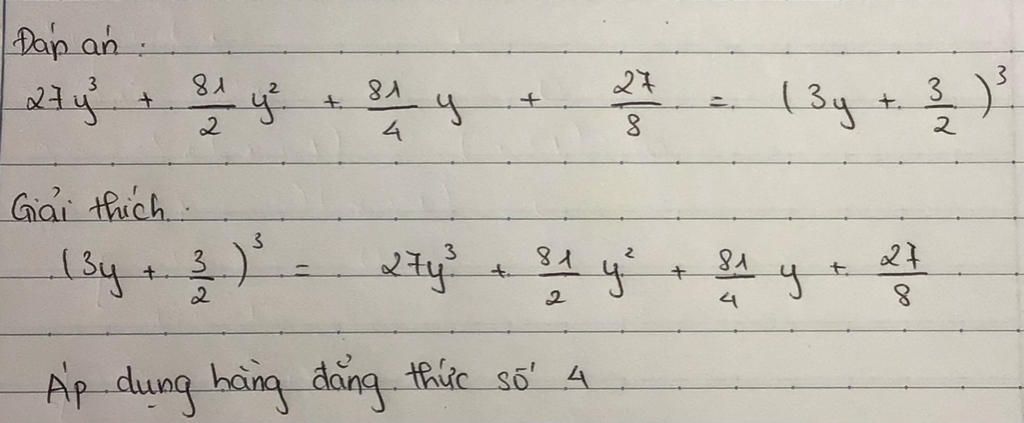 Đáp án:
27y³ + 81/2 y² + 81/4 y + 27/8 = (3y + 3/2)³
Giải thích:
(3y + 3/2)³ = 27y³ + 81/2 y² + 81/4 y + 27/8
Áp dụng hằng đẳng thức số 4